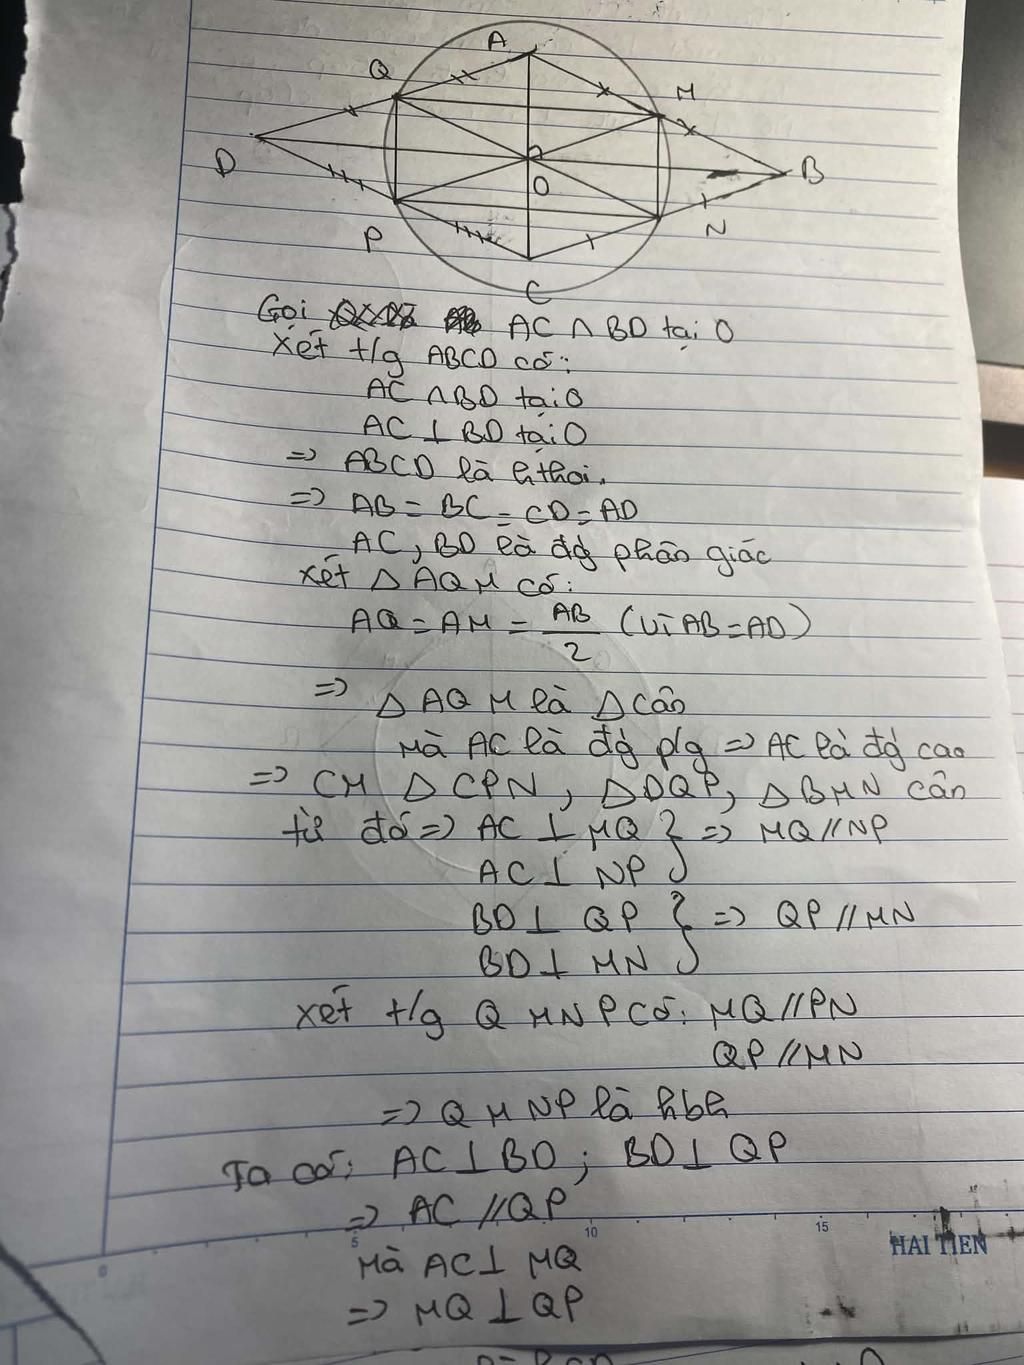 A
Q
M
D
O
B
P
N
C
Gọi AC ∩ BD tại O
Xét t/g ABCD có:
AC ∩ BD tại O
AC ⊥ BD tại O
=> ABCD là h thoi.
=> AB = BC = CD = AD
AC, BD là đg phân giác
Xét Δ AQM có:
AQ = AM = AB/2 (vì AB = AD)
=> Δ AQM là Δ cân
Mà AC là đg p/g => AC là đg cao
=> CM Δ CPN, Δ DQP, Δ BMN cân
từ đó => AC ⊥ MQ } => MQ // NP
AC ⊥ NP
BD ⊥ QP } => QP // MN
BD ⊥ MN
xét t/g QMNP có: MQ // PN
QP // MN
=> QMNP là hbh
Ta có: AC ⊥ BD ; BD ⊥ QP
=> AC // QP
0 5 10 15
HAI TIEN
Mà AC ⊥ MQ
=> MQ ⊥ QP